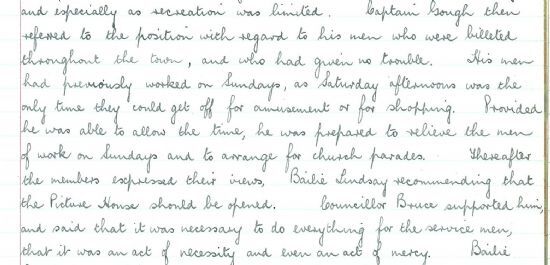 and especially as recreation was limited. Captain Gough then
referred to the position with regard to his men who were billeted
throughout the town, and who had given no trouble. His men
had previously worked on Sundays, as Saturday afternoons was the
only time they could get off for amusement or for shopping. Provided
he was able to allow the time, he was prepared to relieve the men
of work on Sundays and to arrange for church parades. Thereafter
the members expressed their views, Bailie Lindsay recommending that
the Picture House should be opened. Councillor Bruce supported him,
and said that it was necessary to do everything for the service men,
that it was an act of necessity and even an act of mercy. Bailie